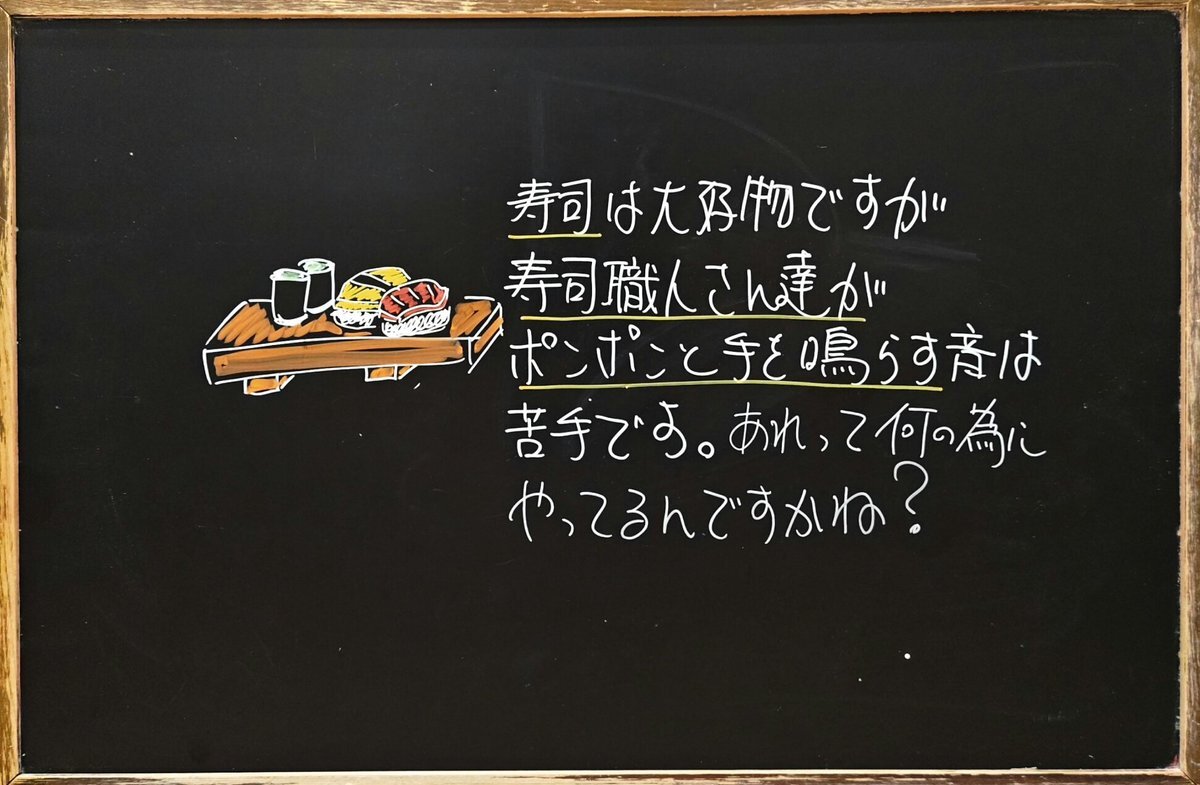 寿司は大好物ですが
寿司職人さん達が
ポンポンと手を鳴らす音は
苦手です。あれって何の為に
やってるんですかね？